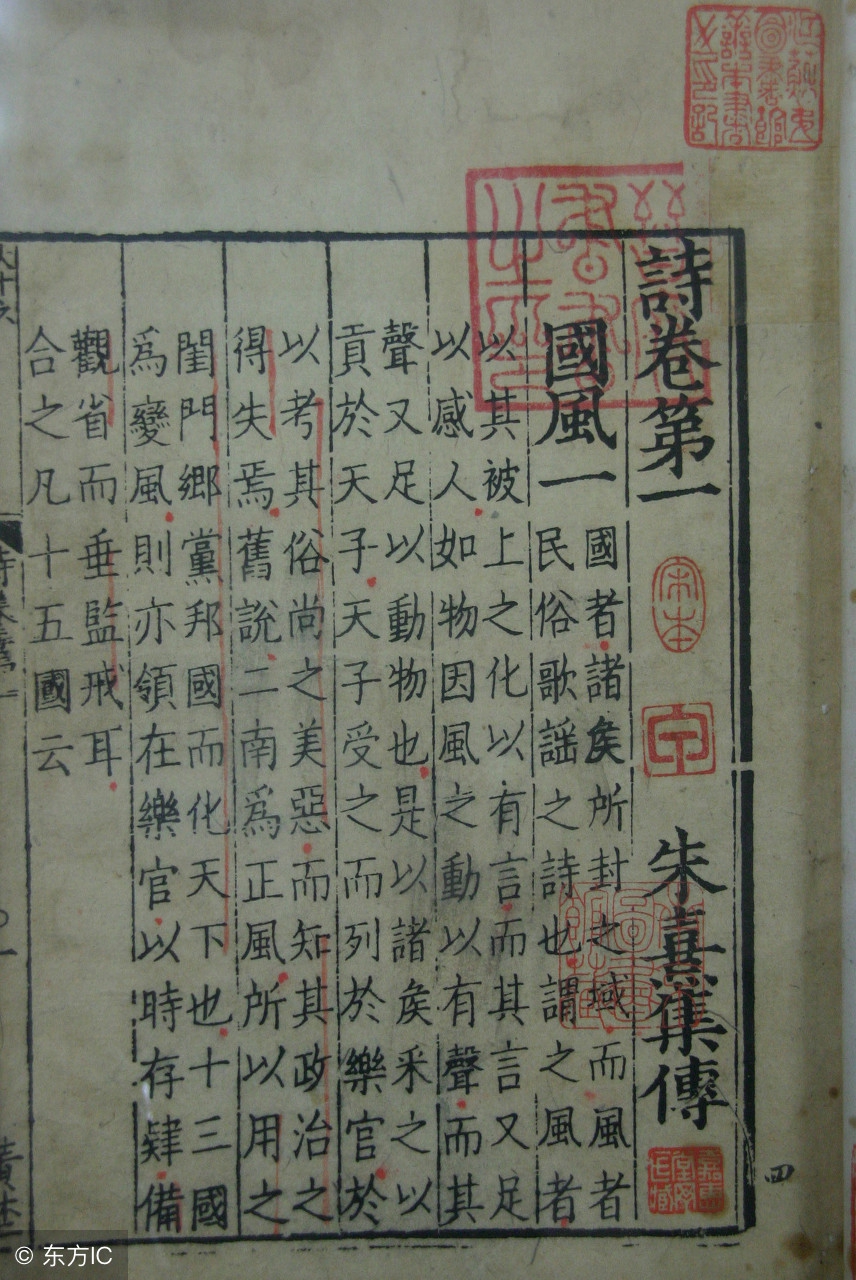 詩卷第一
朱熹集傳
國風一
國者諸矦所封之域而風者
民俗歌謡之詩也謂之風者
以其被上之化以有言而其言又足
以感人如物因風之動以有聲而其
聲又足以動物也是以諸矦采之以
貢於天子天子受之而列於樂官於
以考其俗尚之美惡而知其政治之
得失焉舊說二南爲正風所以用之
閨門鄉黨邦國而化天下也十三國
爲變風則亦領在樂官以時存肄備
觀省而垂監戒耳
合之凡十五國云
宋本
四
© 东方IC